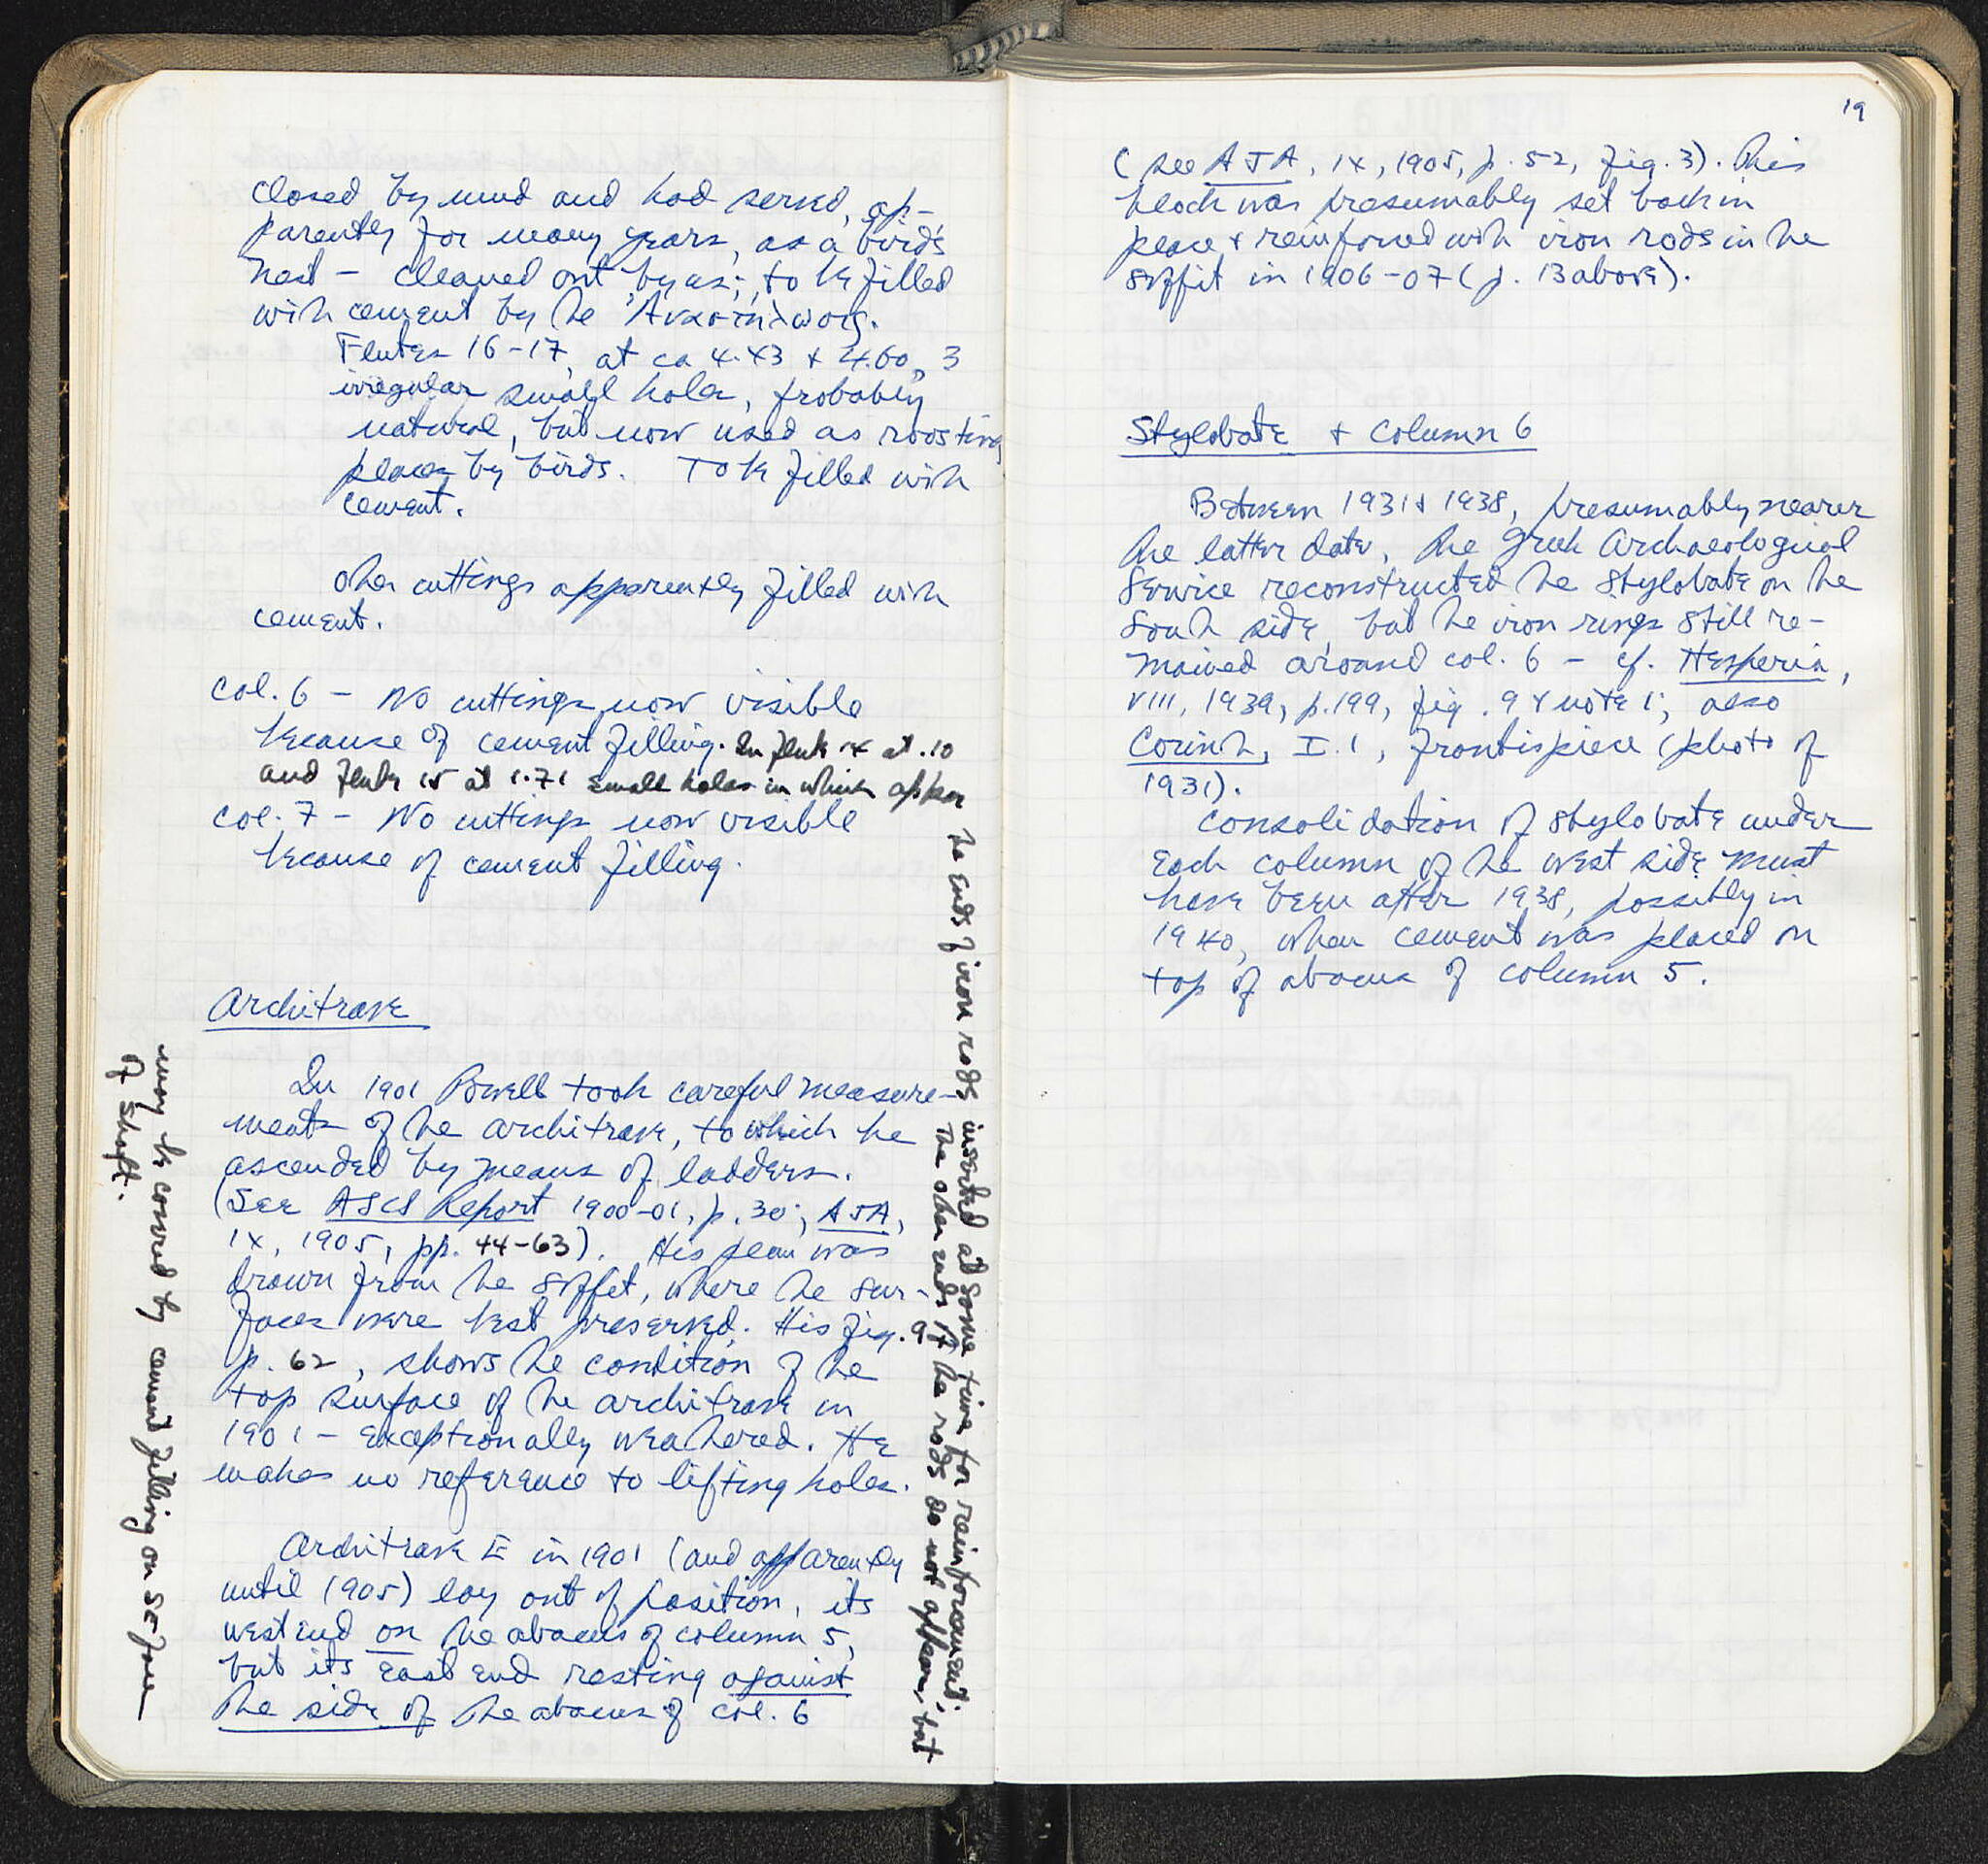 closed by mud and had served, ap-
parently for many years, as a bird's
nest - cleaned out by us; to be filled
with cement by the Ἀναστήλωσις.
Flutes 16-17, at ca 4.43 + 4.60, 3
irregular small holes, probably
natural, but now used as roosting
places by birds. To be filled with
cement.
Other cuttings apparently filled with
cement.
Col. 6 - No cuttings now visible
because of cement filling. In flute 14 at .10
and flute 15 at 1.71 small holes in which appear
the ends of iron rods inserted at some time for reinforcement;
The other ends of the rods do not appear, but
may be covered by cement filling on SE face
of shaft.
Col. 7 - No cuttings now visible
because of cement filling.
Architrave
In 1901 Powell took careful measure-
ments of the architrave, to which he
ascended by means of ladders.
(See ASCS Report 1900-01, p. 30; AJA,
IX, 1905, pp. 44-63). His plan was
drawn from the soffit, where the sur-
faces were best preserved. His fig. 9
p. 62, shows the condition of the
top surface of the architrave in
1901 - exceptionally weathered. He
makes no reference to lifting holes.
Architrave E in 1901 (and apparently
until 1905) lay out of position, its
west end on the abacus of column 5,
but its east end resting against
the side of the abacus of col. 6
19
(see AJA, IX, 1905, p. 52, fig. 3). This
block was presumably set back in
place + reinforced with iron rods in the
soffit in 1906-07 (p. 13 above).
Stylobate + Column 6
Between 1931 + 1938, presumably nearer
the latter date, the Greek Archaeological
Service reconstructed the stylobate on the
south side, but the iron rings still re-
mained around col. 6 - cf. Hesperia,
VIII, 1939, p. 199, fig. 9 + note 1; also
Corinth, I.1, frontispiece (photo of
1931).
Consolidation of stylobate under
each column of the west side must
have been after 1938, possibly in
1940, when cement was placed on
top of abacus of column 5.